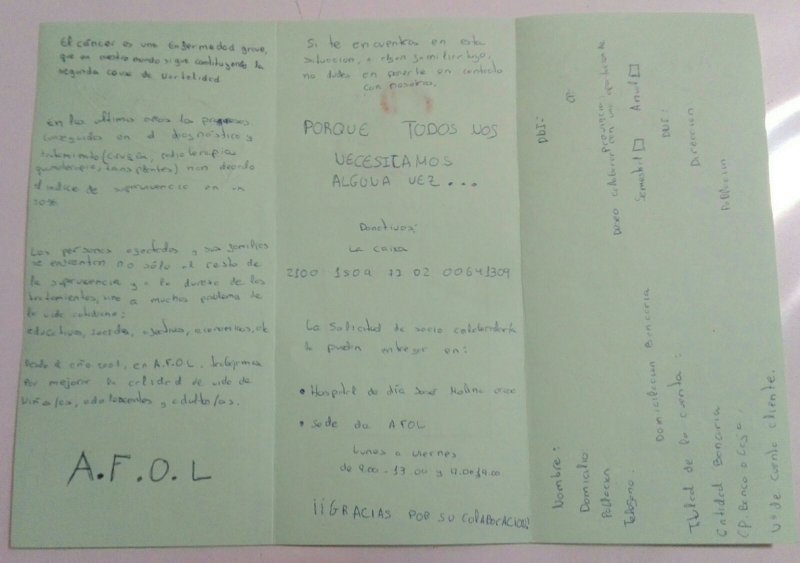 El cáncer es una Enfermedad grave,
que en nuestro mundo sigue constituyendo la
segunda causa de Mortalidad
En los ultimos años los progresos
conseguidos en el diagnóstico y
tratamiento (cirugía, radioterapia,
quimioterapia, transplantes) han
el indice de supervivencia en un
70%
Las personas afectadas y sus familias
se encuentran no sólo al resto de
la supervivencia y a la dureza de los
tratamientos, sino a muchos problema de
la vida cotidiana:
educativos, sociales, afectivos, economicos, etc
Desde el año 2001, en A.F.O.L. trabajamos
Por mejorar la calidad de vida de
Niños/as, adolescentes y adultos/as.
A.F.O.L
Si te encuentras en esta
situacion, o algun familiar tuyo,
no dudes en ponerte en contacto
con nosotros.
PORQUE TODOS NOS
NECESITAMOS
ALGUNA VEZ...
Donativos:
La caixa
2100 1809 72 02 00641309
La Solicitud de socio colaborador/a
la puedes entregar en:
• Hospital de día
• Sede de AFOL
Lunes a viernes
de 9.00 - 13.00 y
¡¡GRACIAS POR SU COLABORACION!!
Nombre:
DNI:
Domicilio
CP
Poblacion
Provincia
Telefono.
Deseo colaborar con una de
Semestral □ Anual □
Domiciliacion Bancaria
Titular de la cuenta:
DNI:
Entidad Bancaria
Direccion
CP. Banco o Caja.
Poblacion
Nº de cuenta cliente.